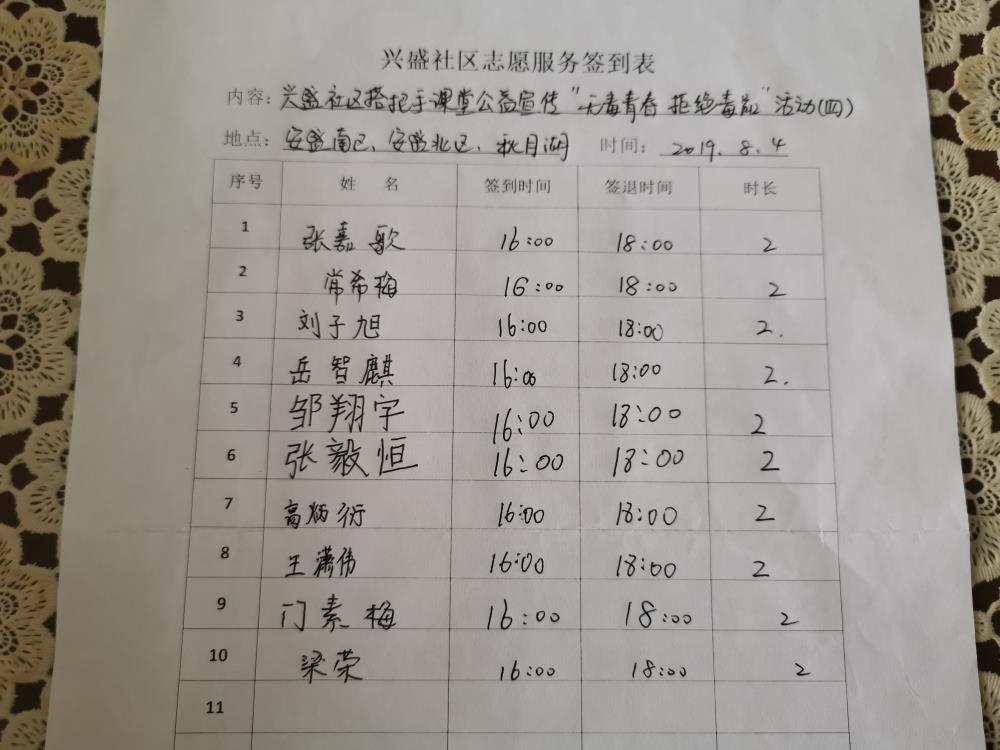 兴盛社区志愿服务签到表
内容：兴盛社区搭把手课堂公益宣传“无毒青春 拒绝毒品”活动(四)
地点：安盛南区、安盛北区、秋月湖 时间：2019.8.4
序号 姓 名 签到时间 签退时间 时长
1 张嘉歌 16:00 18:00 2
2 常希梅 16:00 18:00 2
3 刘子旭 16:00 18:00 2.
4 岳智麒 16:00 18:00 2.
5 邹翔宇 16:00 18:00 2
6 张毅恒 16:00 18:00 2
7 高炳衍 16:00 18:00 2
8 王潇伟 16:00 18:00 2
9 门素梅 16:00 18:00 2
10 梁荣 16:00 18:00 2
11